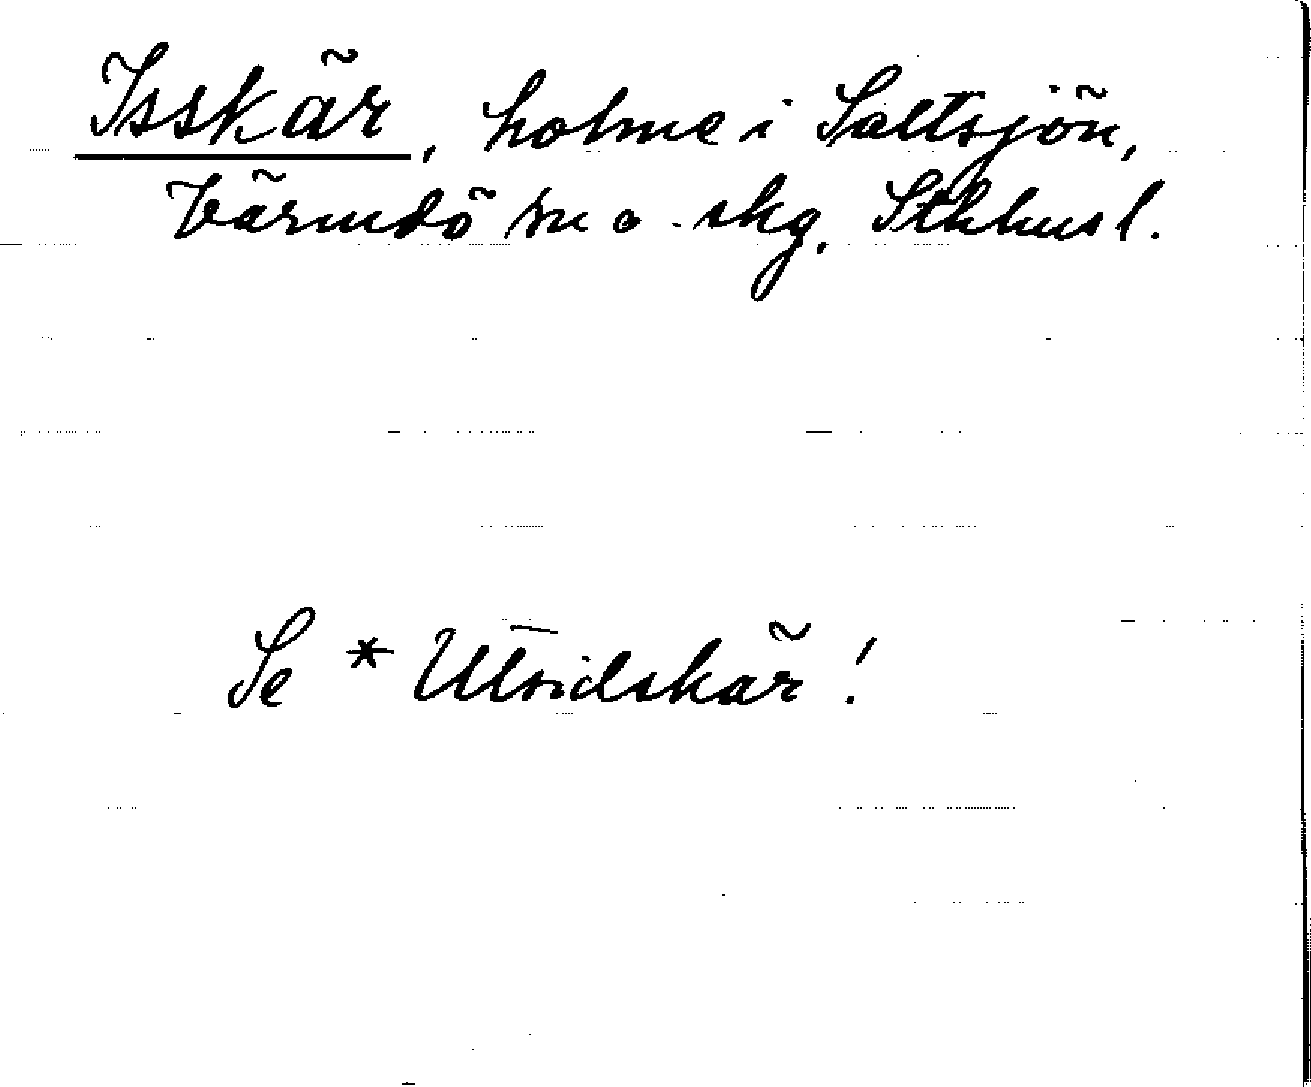 Isskär, holme i Saltsjön,
Värmdö sn o. skg, Sthlms l.
Se * Utridskär!